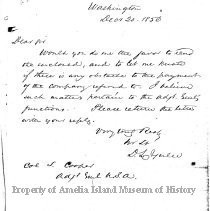 Washington
Decr 20. 1850
Dear sir
Would you do me the favor to read
the inclosed, and to let me know
if there is any obstacle to the payment
of the company referred to. I believe
such matters pertain to the adjt. Genl's
functions. Please return the letter
with your reply.
Very Resp
D. L. Yulee
Col. S. Cooper
Adjt Genl U.S.A.
Property of Amelia Island Museum of History